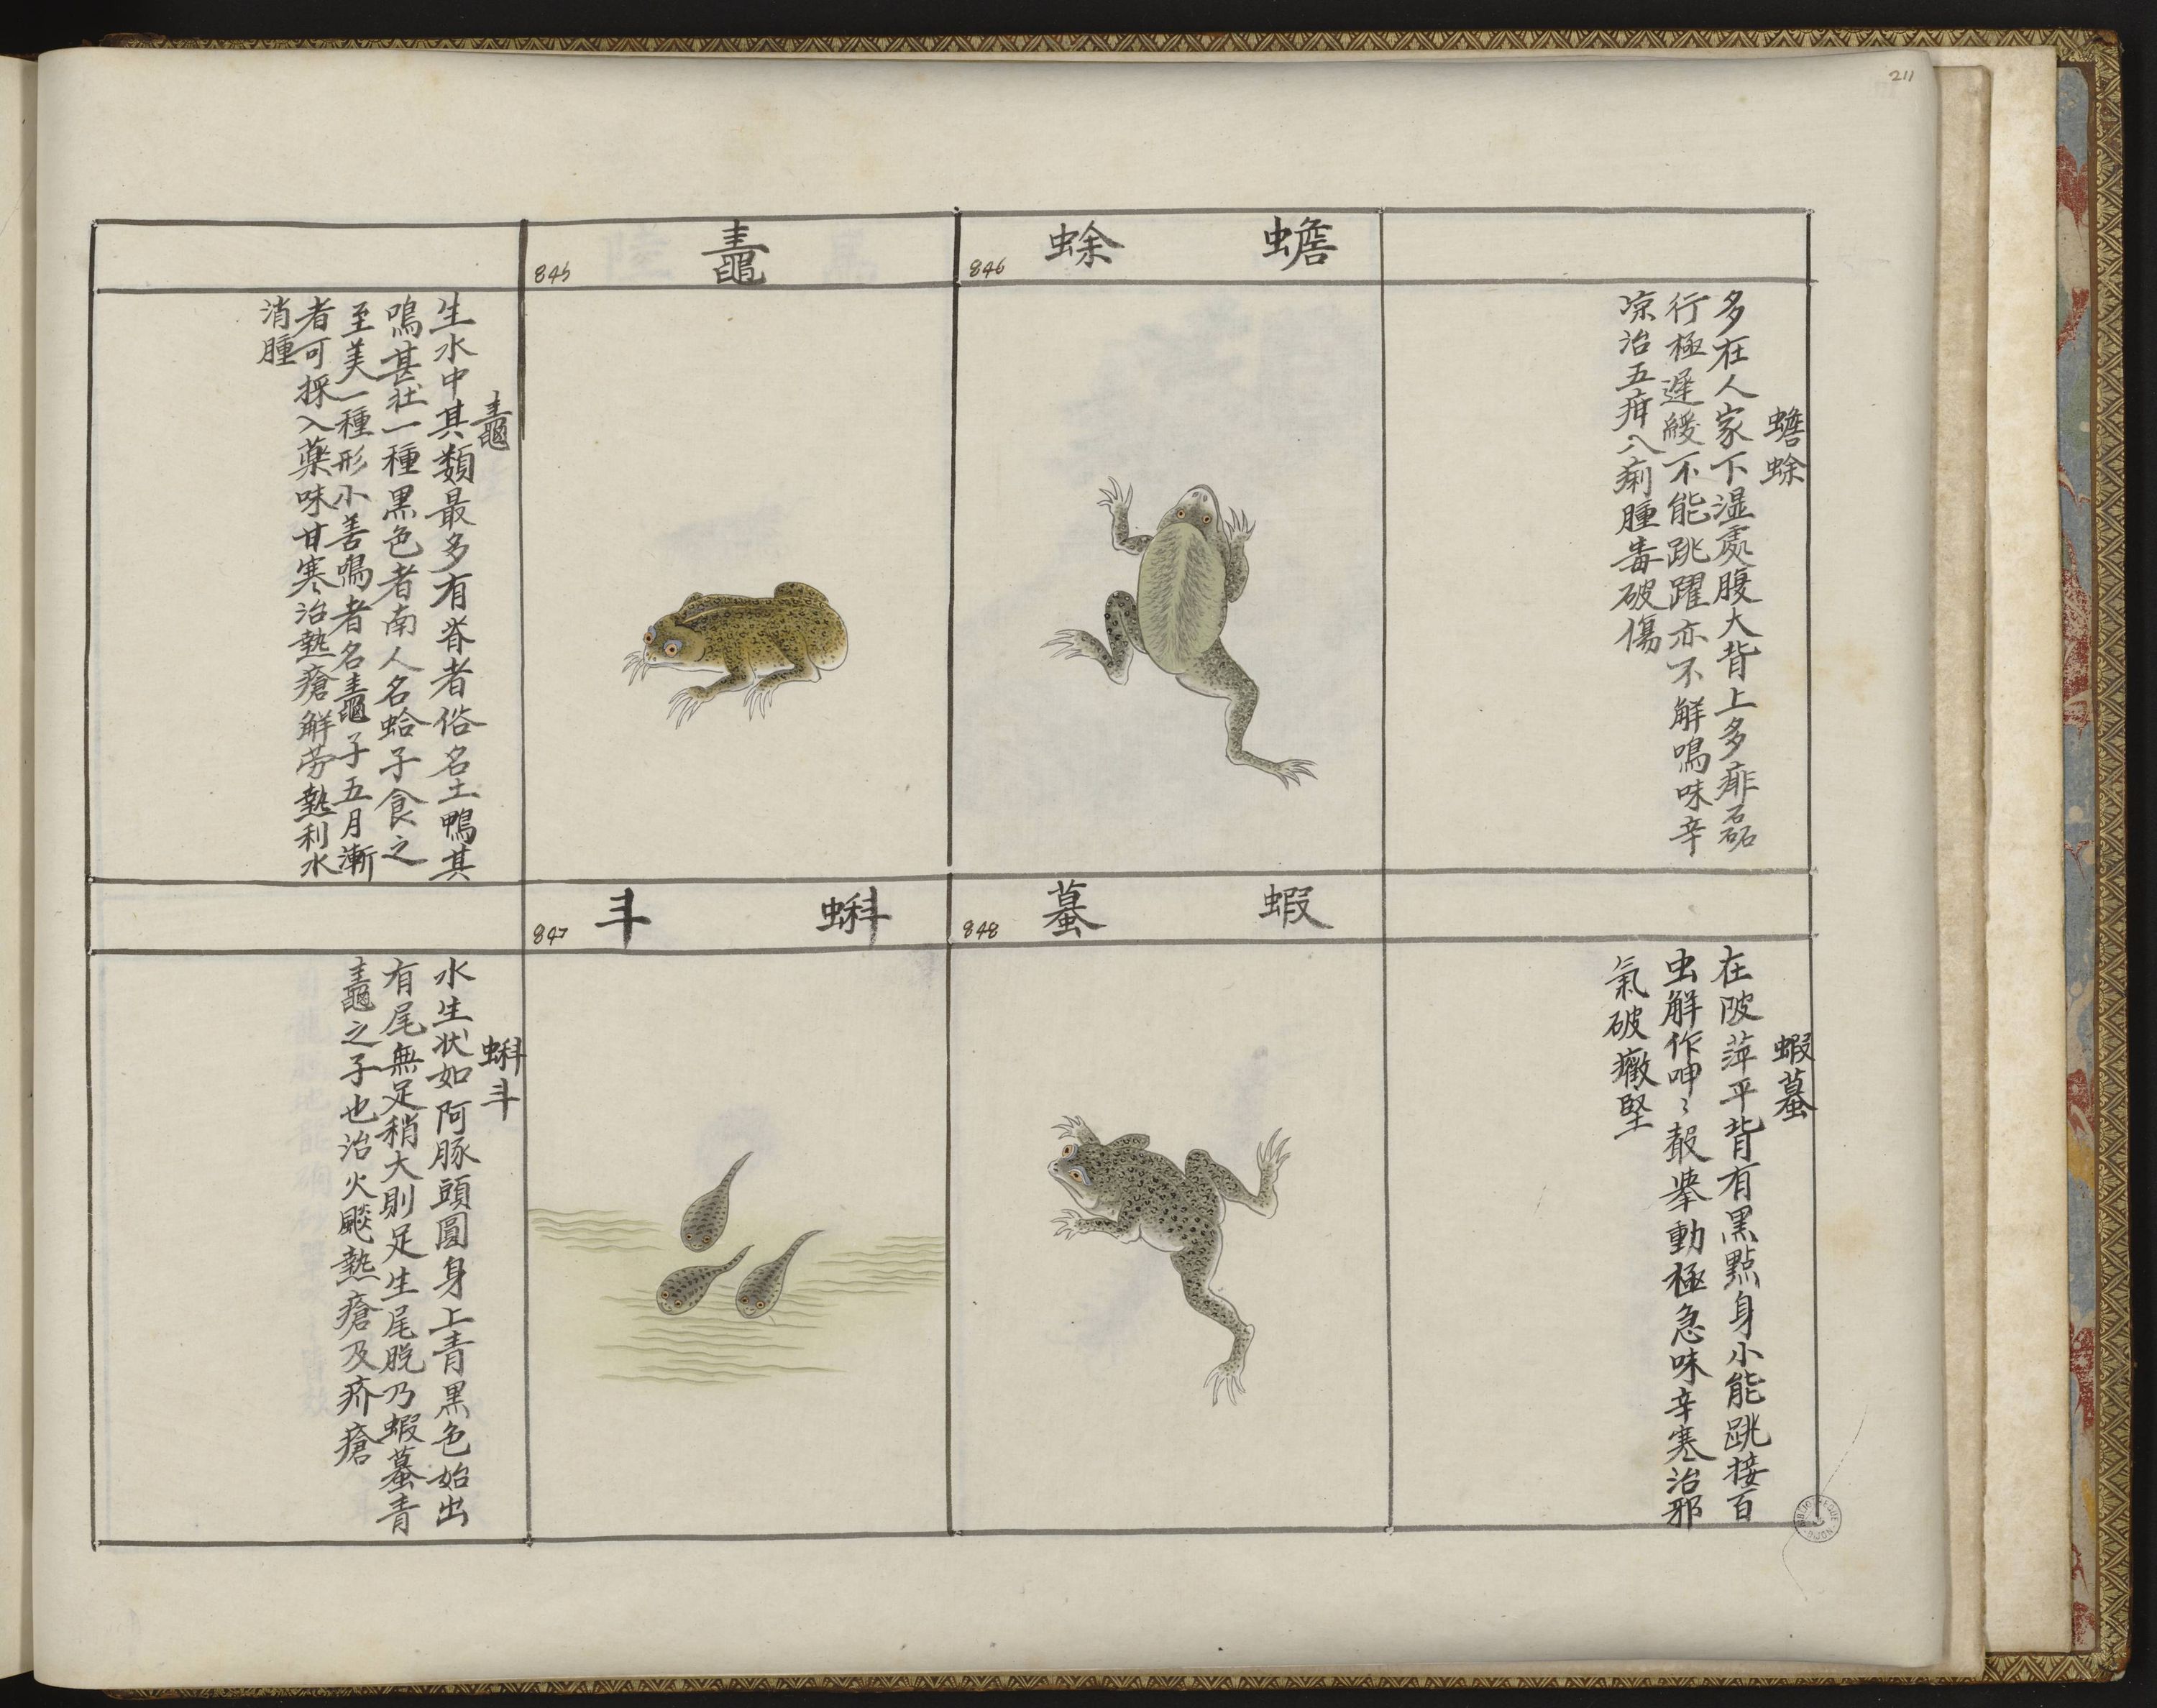 211
蟾蜍
846
蟾蜍
多在人家下濕處腹大背上多痱磊
行極遲緩不能跳躍亦不解鳴味辛
凉治五疳八痢腫毒破傷
鼃
845
鼃
生水中其類最多有脊者俗名土鴨其
鳴甚壯一種黑色者南人名蛤子食之
至美一種形小善鳴者名鼃子五月漸
者可採入藥味甘寒治熱瘡解勞熱利水
消腫
蝦蟇
848
蝦蟇
在陂萍平背有黑點身小能跳接百
虫解作呷〻聲舉動極急味辛寒治邪
氣破癥堅
蝌斗
847
蝌斗
水生狀如阿豚頭圓身上青黑色始出
有尾無足稍大則足生尾脫乃蝦蟇青
鼃之子也治火颷熱瘡及疥瘡